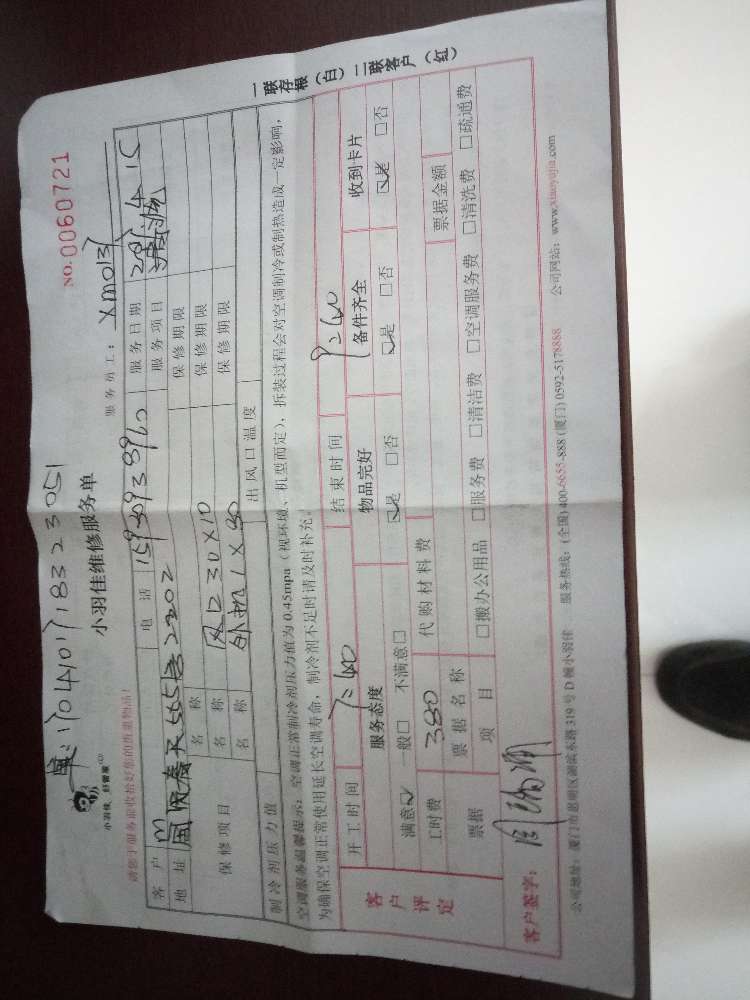 单:1704101718323051
NO.0060721
小羽佳,好管家
小羽佳维修服务单
服务员工: XM013
请您于服务前收拾好您的贵重物品!
客户 电话 服务日期
地址 服务项目 清洗
保修项目 名称 保修期限
名称 风口30×10 保修期限
名称 外机1×80 保修期限
制冷剂压力值 出风口温度
空调服务温馨提示:空调正常制冷剂压力值为0.45mpa(视环境、机型而定),拆装过程会对空调制冷或制热造成一定影响,
为确保空调正常使用延长空调寿命,制冷剂不足时请及时补充。
一联存根(白)二联客户(红)
客户评定
开工时间 7:40 结束时间 9:40
服务态度 物品完好 备件齐全 收到卡片
满意☑ 一般□ 不满意□ ☑是 □否 ☑是 □否 ☑是 □否
工时费 380 代购材料费
票据 票据名称 票据金额
项目 □搬办公用品 □服务费 □清洁费 □空调服务费 □清洗费 □疏通费
客户签字:
公司地址:厦门市思明区湖滨东路319号D幢小羽佳 服务热线:(全国)400-6655-888 (厦门)0592-5178888 公司网站:www.xiaoyujia.com